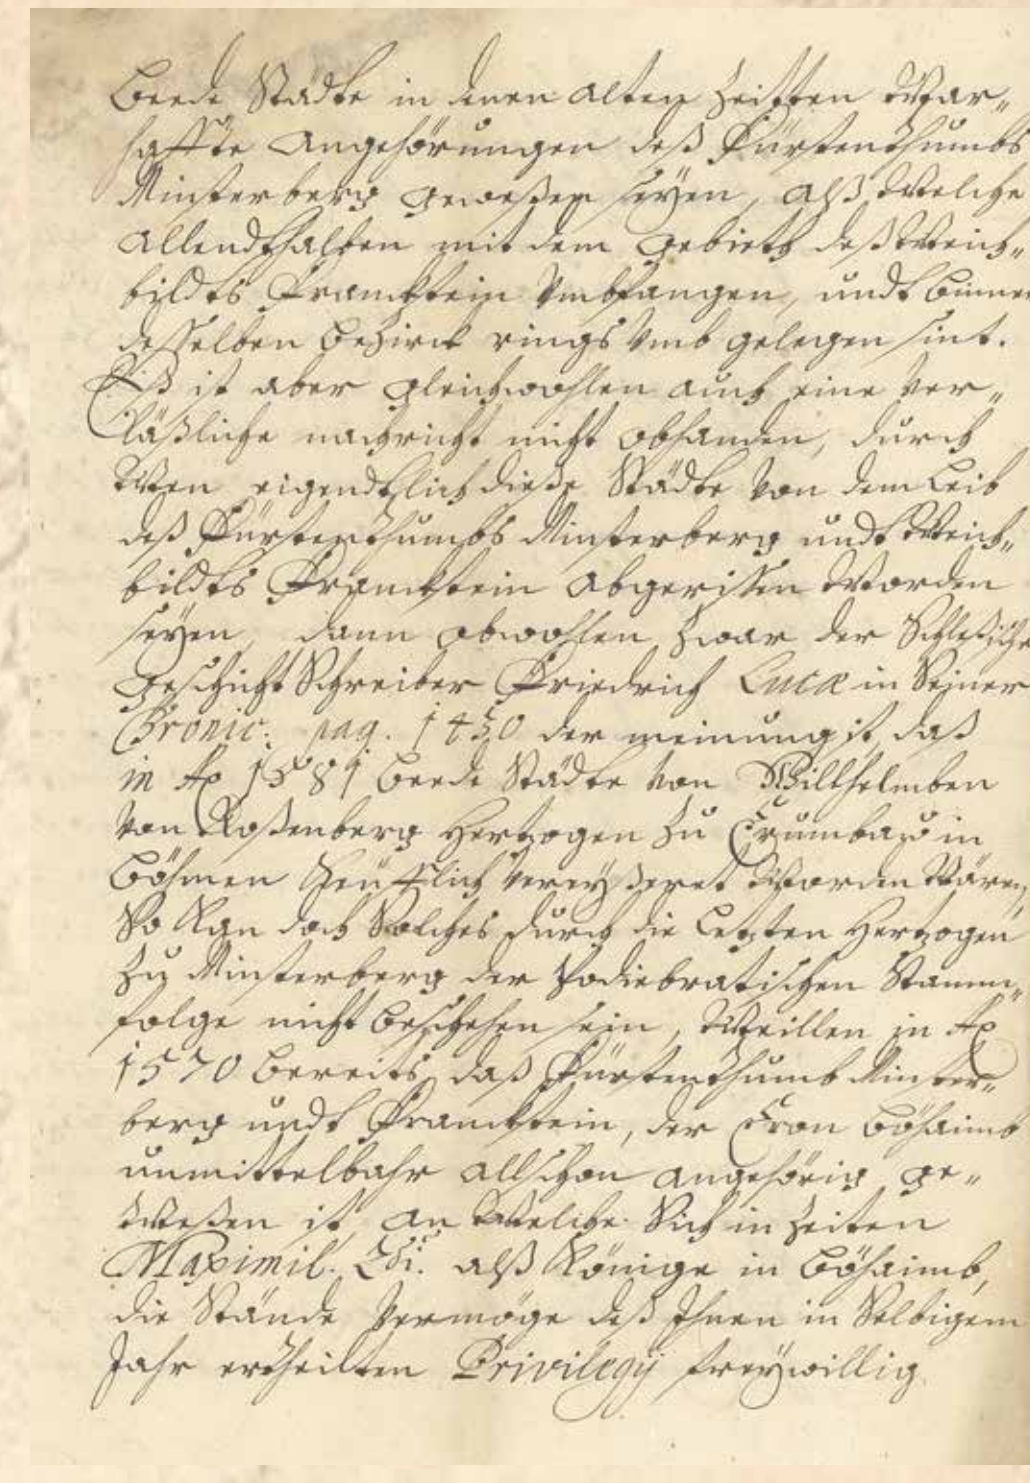 Beede Städte in denen alten Zeitten War„
haffte Angehörungen deß Fürstenthumbs
Minsterberg geweßen seyen, alß Welche
allendthalben mit dem gebieth deß Weich„
bildts Franckstein umbfangen, undt binnen
desselben Bezirck rings umb gelegen sint.
Eß ist aber gleichwohlen auch eine Ver„
läßliche nachricht nicht obhanden, durch
Wen eigendtlich dieße Städte von dem Leib
deß Fürstenthumbs Minsterberg undt Weich„
bildts Franckstein abgerissen Worden
seyen, dann obwohlen zwar der Schleßische
Geschicht Schreiber Friedrich Lucæ in Seiner
Chronic: pag. 1450 der meinung ist, daß
in Ao 1581 beede Städte von Willhelmben
von Roßenberg Hertzogen zu Crumbaw in
Böhmen Käufflich vereyßeret Worden Wären,
So Kan doch Solches durch die Letzten Hertzogen
zu Minsterberg der Podiebratischen Stamm„
folge nicht beschehen sein, Weillen in Ao
1570 bereits daß Fürstenthumb Minster„
berg undt Franckstein, der Cron Böhaimb
unmittelbahr allschon angehörig ge„
Weßen ist, an Welche Sich in Zeiten
Maximil: 2di. alß Königs in Böhaimb,
die Stände Vermöge deß Ihnen in Selbigem
Jahr ertheilten Privilegij freywillig